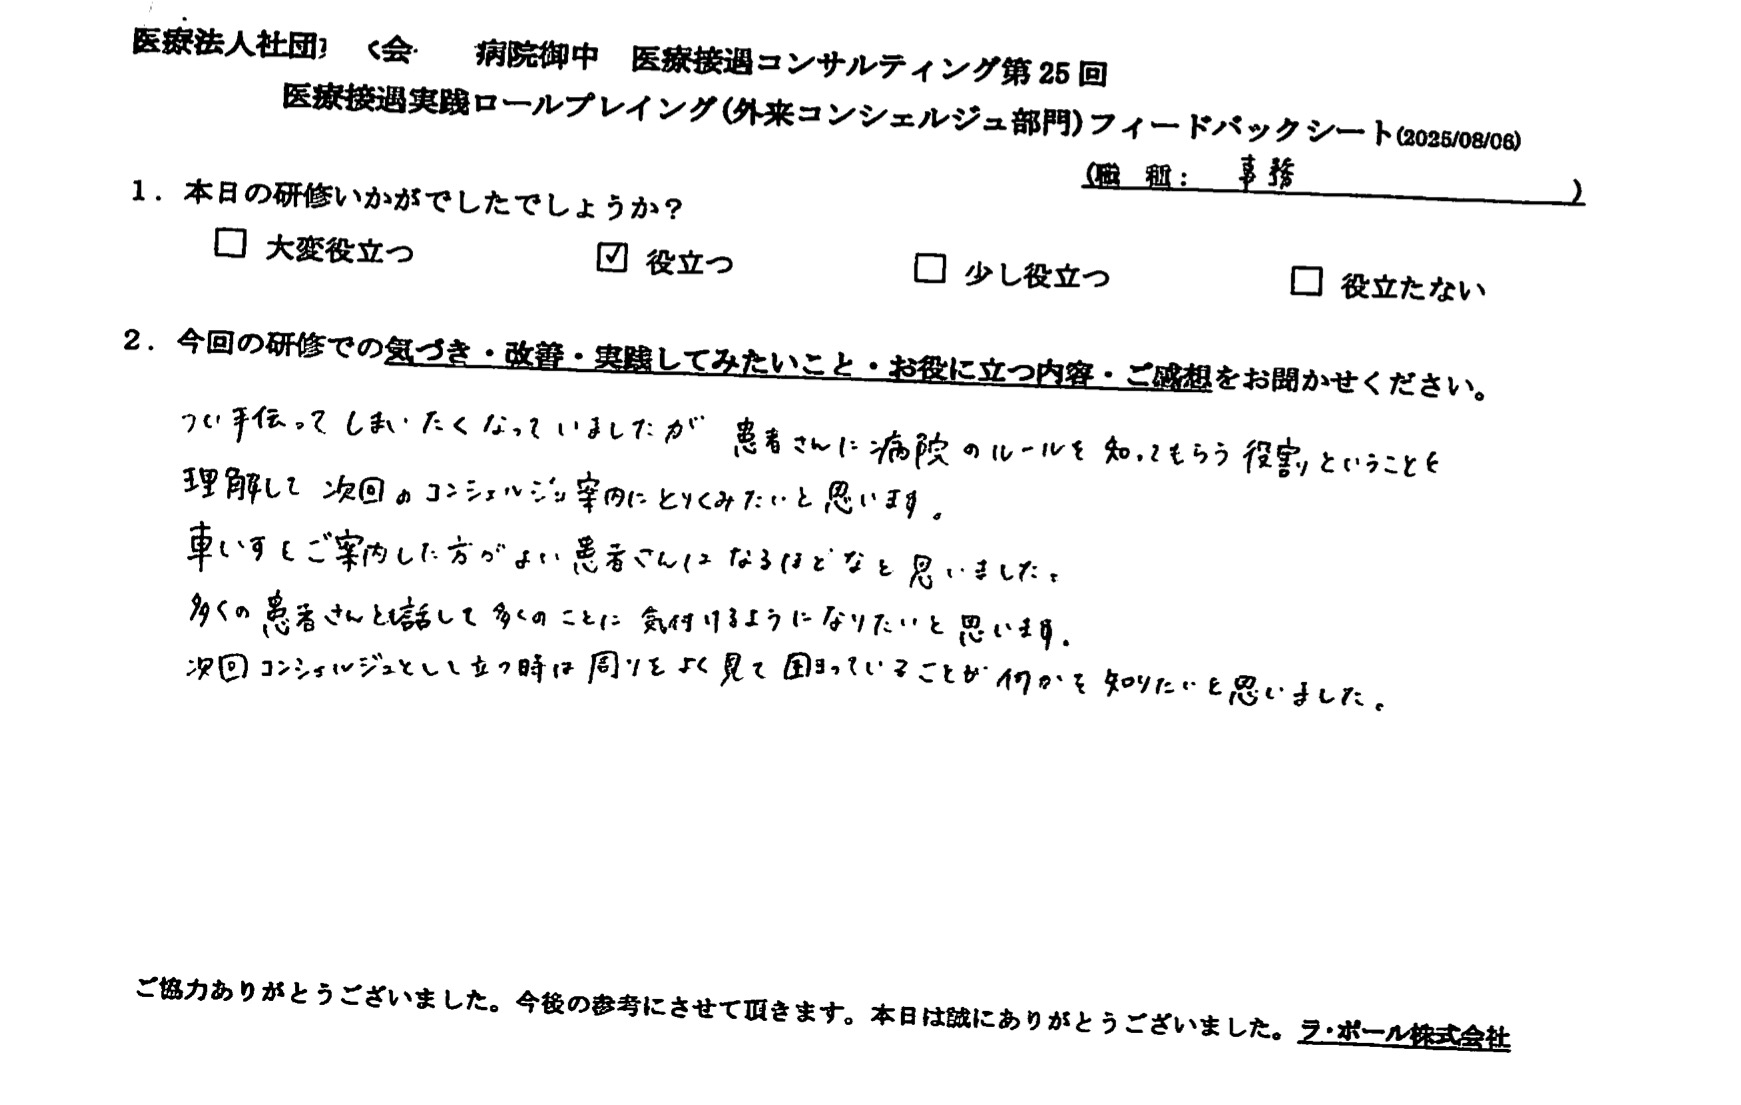 医療法人社団 会 病院御中 医療接遇コンサルティング第25回
医療接遇実践ロールプレイング(外来コンシェルジュ部門)フィードバックシート(2025/08/06)
(職 種: 事務 )
1. 本日の研修いかがでしたでしょうか?
☐ 大変役立つ ☑ 役立つ ☐ 少し役立つ ☐ 役立たない
2. 今回の研修での気づき・改善・実践してみたいこと・お役に立つ内容・ご感想をお聞かせください。
つい手伝ってしまいたくなっていましたが 患者さんに病院のルールを知ってもらう役割ということを
理解して次回のコンシェルジュ案内にとりくみたいと思います。
車いすをご案内した方がよい患者さんになるほどなと思いました。
多くの患者さんと話して多くのことに気付けるようになりたいと思います。
次回コンシェルジュとして立つ時は周りをよく見て困っていることが何かを知りたいと思いました。
ご協力ありがとうございました。今後の参考にさせて頂きます。本日は誠にありがとうございました。ラ・ポール株式会社